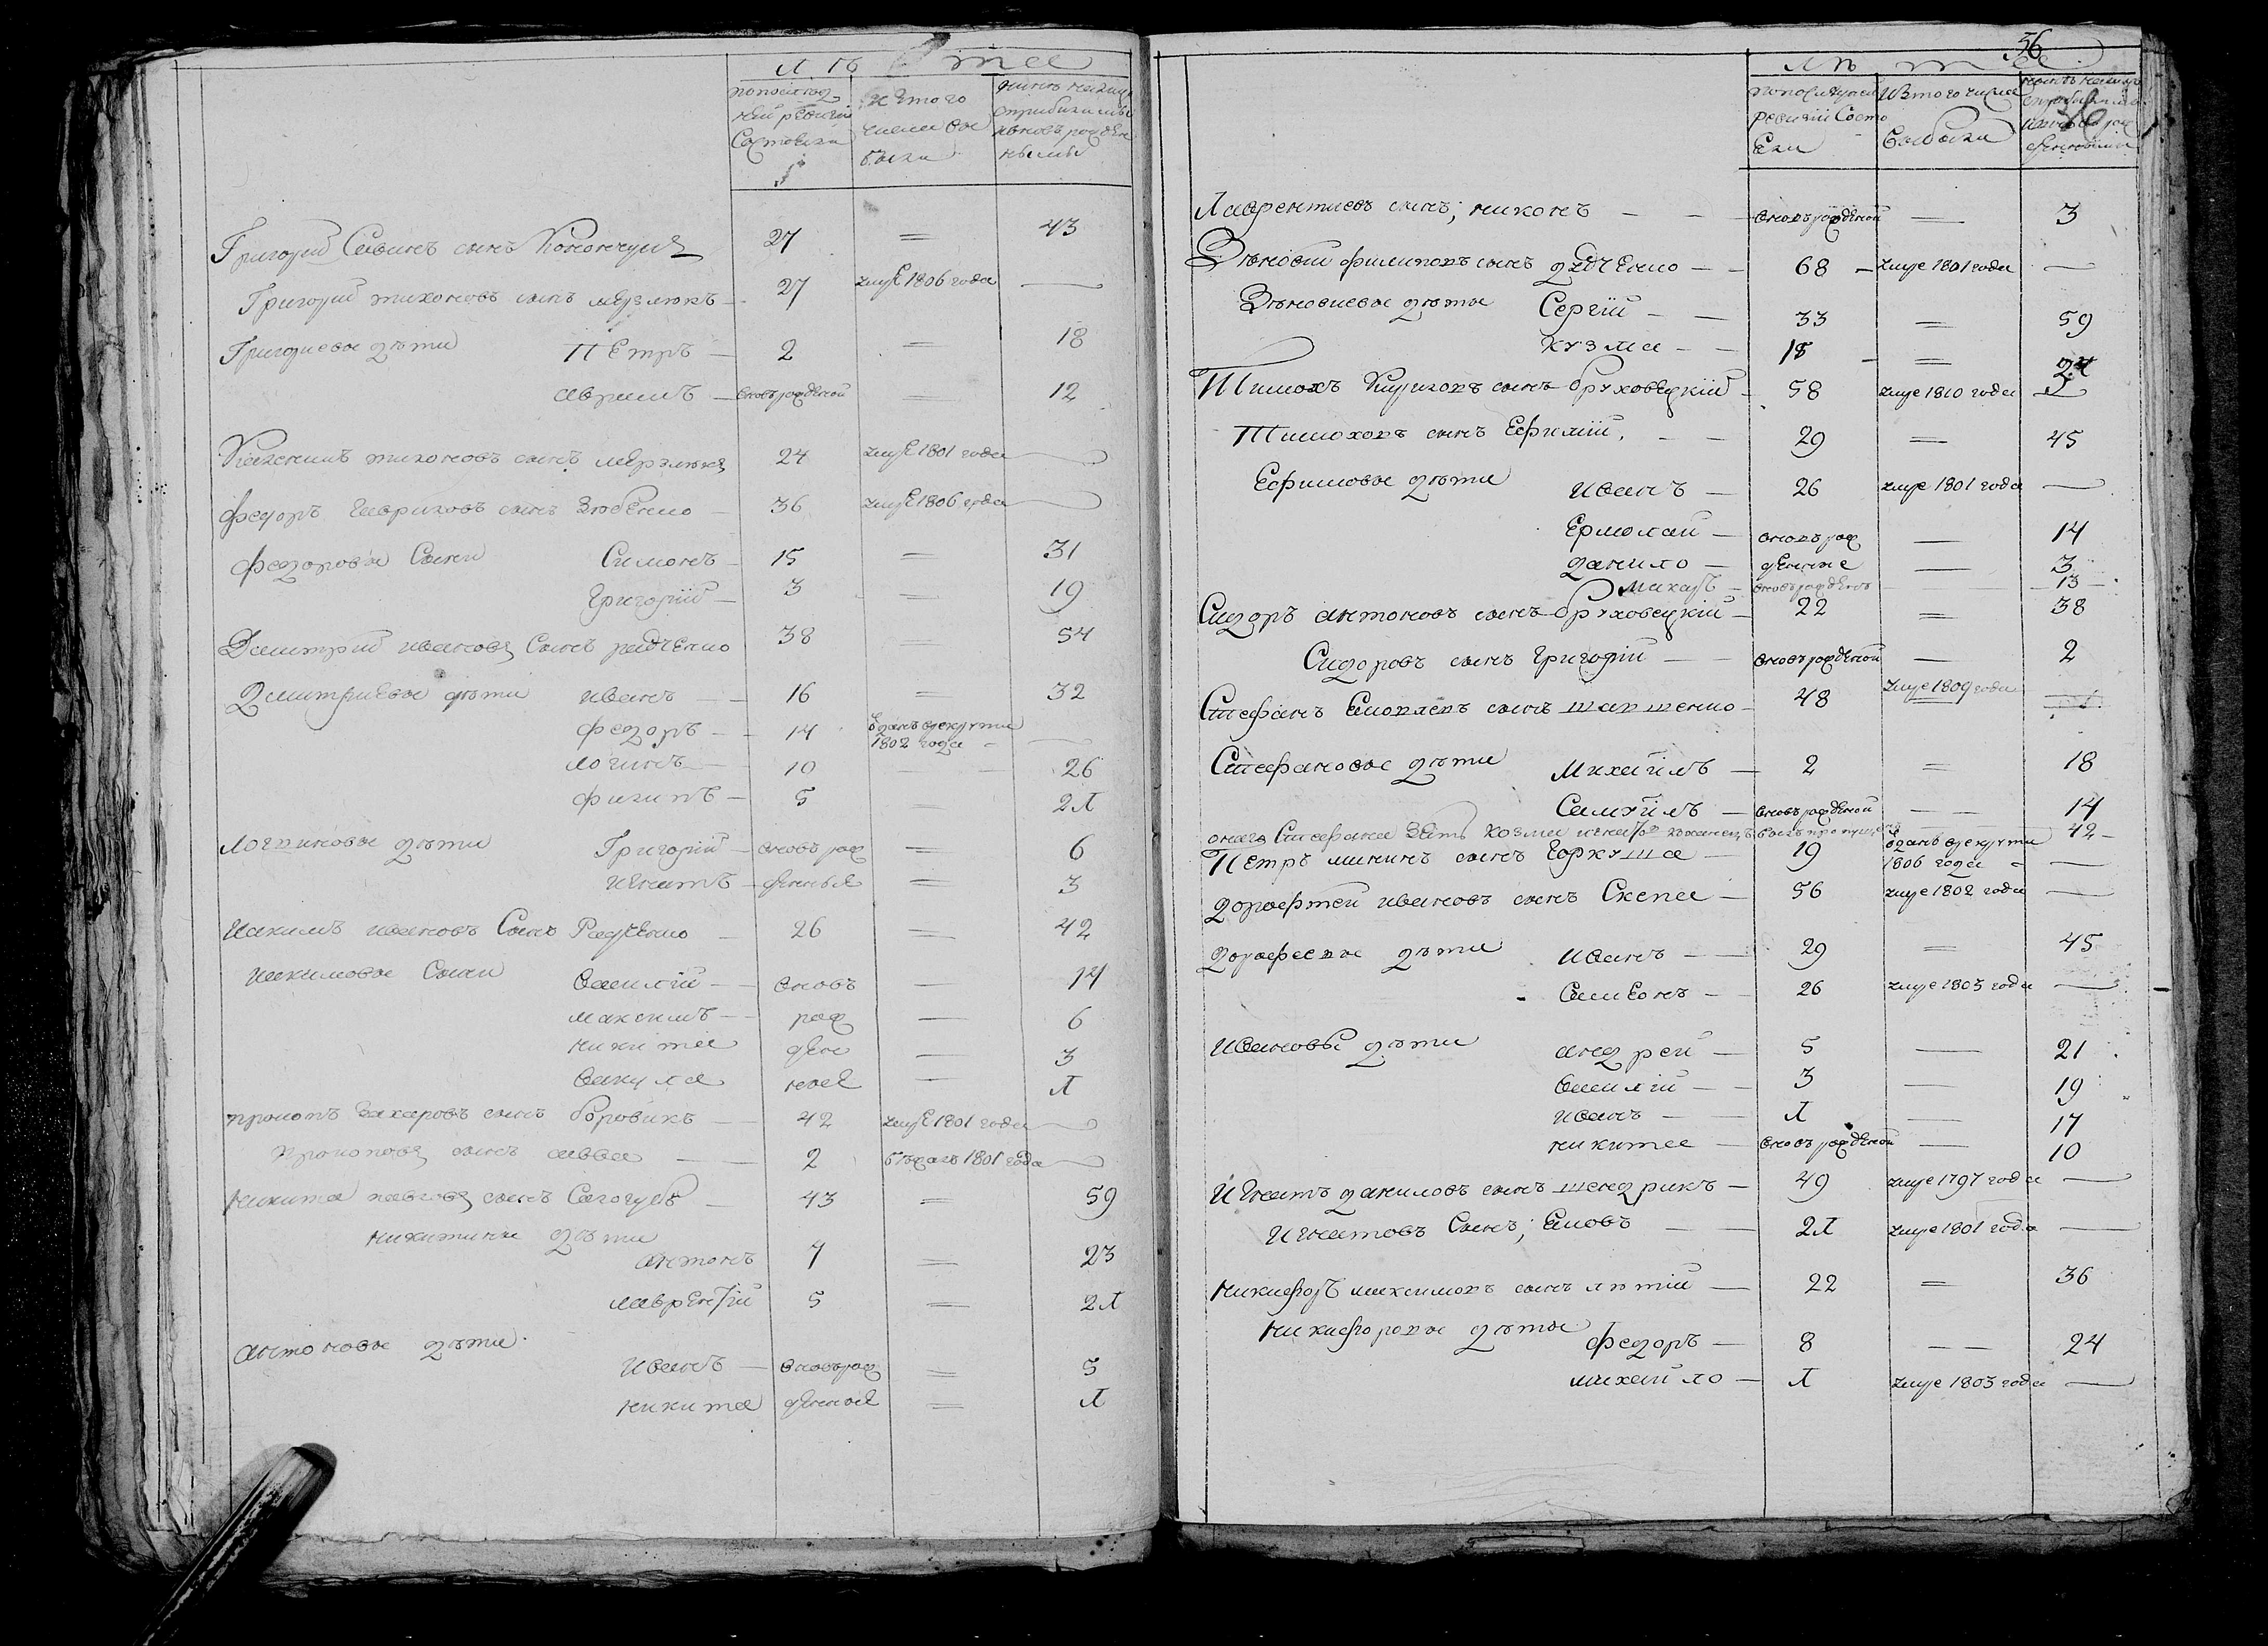 Лѣта
попослед
ней ревизіи
Состояли
ис того
числа вы
было
ныне налицо
сприбилими
иновъ рожден
ными
Григорий Савинъ сынъ Кононенця 27 = 43
Григорий тихоновъ сынъ мерзлюкъ 27 умре 1806 года —
Григориевы дѣти Петръ — 2 = 18
аврамъ — вновърожденой = 12
тихоновъ сынъ мерзлюкъ 24 умре 1801 года —
федоръ гавриловъ сынъ Зубенко — 36 умре 1806 года —
федоровы Сыни Симонъ 15 = 31
григорій — 3 = 19
Дмитрий ивановъ Сынъ радченко 38 = 54
Дмитриевы дѣти иванъ — 16 = 32
федоръ — 14 отданъ врекруты
1802 года —
логинъ — 10 — 26
филипъ — 5 = 21
логвиновы дѣти Григорий — вновъ рож = 6
игнатъ — денныя = 3
иакимъ ивановъ Сынъ Радченко — 26 = 42
иакимовы Сыни василій — вновъ — 14
максимъ — рож — 6
никита ден — 3
вакула ные — 1
прокопъ захаровъ сынъ боровикъ — 42 умре 1801 года —
прокоповъ сынъ савва — 2 бѣжалъ 1801 года —
никита павловъ сынъ Сологубъ — 43 = 59
никитины дѣти
антонъ 7 = 23
лаврентій 5 = 21
антоновы дѣти
иванъ — вновърож = 5
никита денные = 1
56
Лѣта
попоследней
Ревизіи Состо
яли
изтого числа
выбыли
Лаврентиевъ сынъ, никонъ — — вновърожденой — 3
Зѣновии филиповъ сынъ дядченко — 68 — умре 1801 года —
Зѣновиевы дѣти Сергій — — 33 = 59
кузма — — 18 — =
Тимохъ Кириловъ сынъ бруховецкій — 58 умре 1810 года
Тимоховъ сынъ Ефимій, — — 29 = 45
Ефимовы дѣти иванъ — 26 умре 1801 года —
Ермолай — вновърож — 14
данило — денные — 3
михаилъ — вновърожденъ 13 —
Сидоръ антоновъ сынъ бруховецкій — 22 = 38
Сидоровъ сынъ григорій — — вновърожденой — 2
Стефанъ сынъ шапшенко — 48 умре 1809 года
Стефановы дѣти Михайлъ — 2 = 18
Самуйлъ — вновърожденой — — 14
онаго Стефана зять козма 42 —
Петръ мининъ сынъ Горкуша — 19 отданъ врекруты
1806 года — —
дорофтей ивановъ сынъ Скепа — 56 умре 1802 года —
дорофеевы дѣти иванъ — 29 = 45
Симеонъ — 26 умре 1803 года —
ивановы дѣти андрей — 5 — 21
василій — — 3 — 19
иванъ — 1 — 17
никита — вновърожденой — 10
игнатъ даниловъ сынъ шендрикъ — 49 умре 1797 года —
игнатовъ Сынъ, — — 21 умре 1801 года —
никифоръ максимовъ сынъ лютій — 22 = 36
никифоровы дѣты федоръ — 8 — — 24
михайло — 1 умре 1803 года —